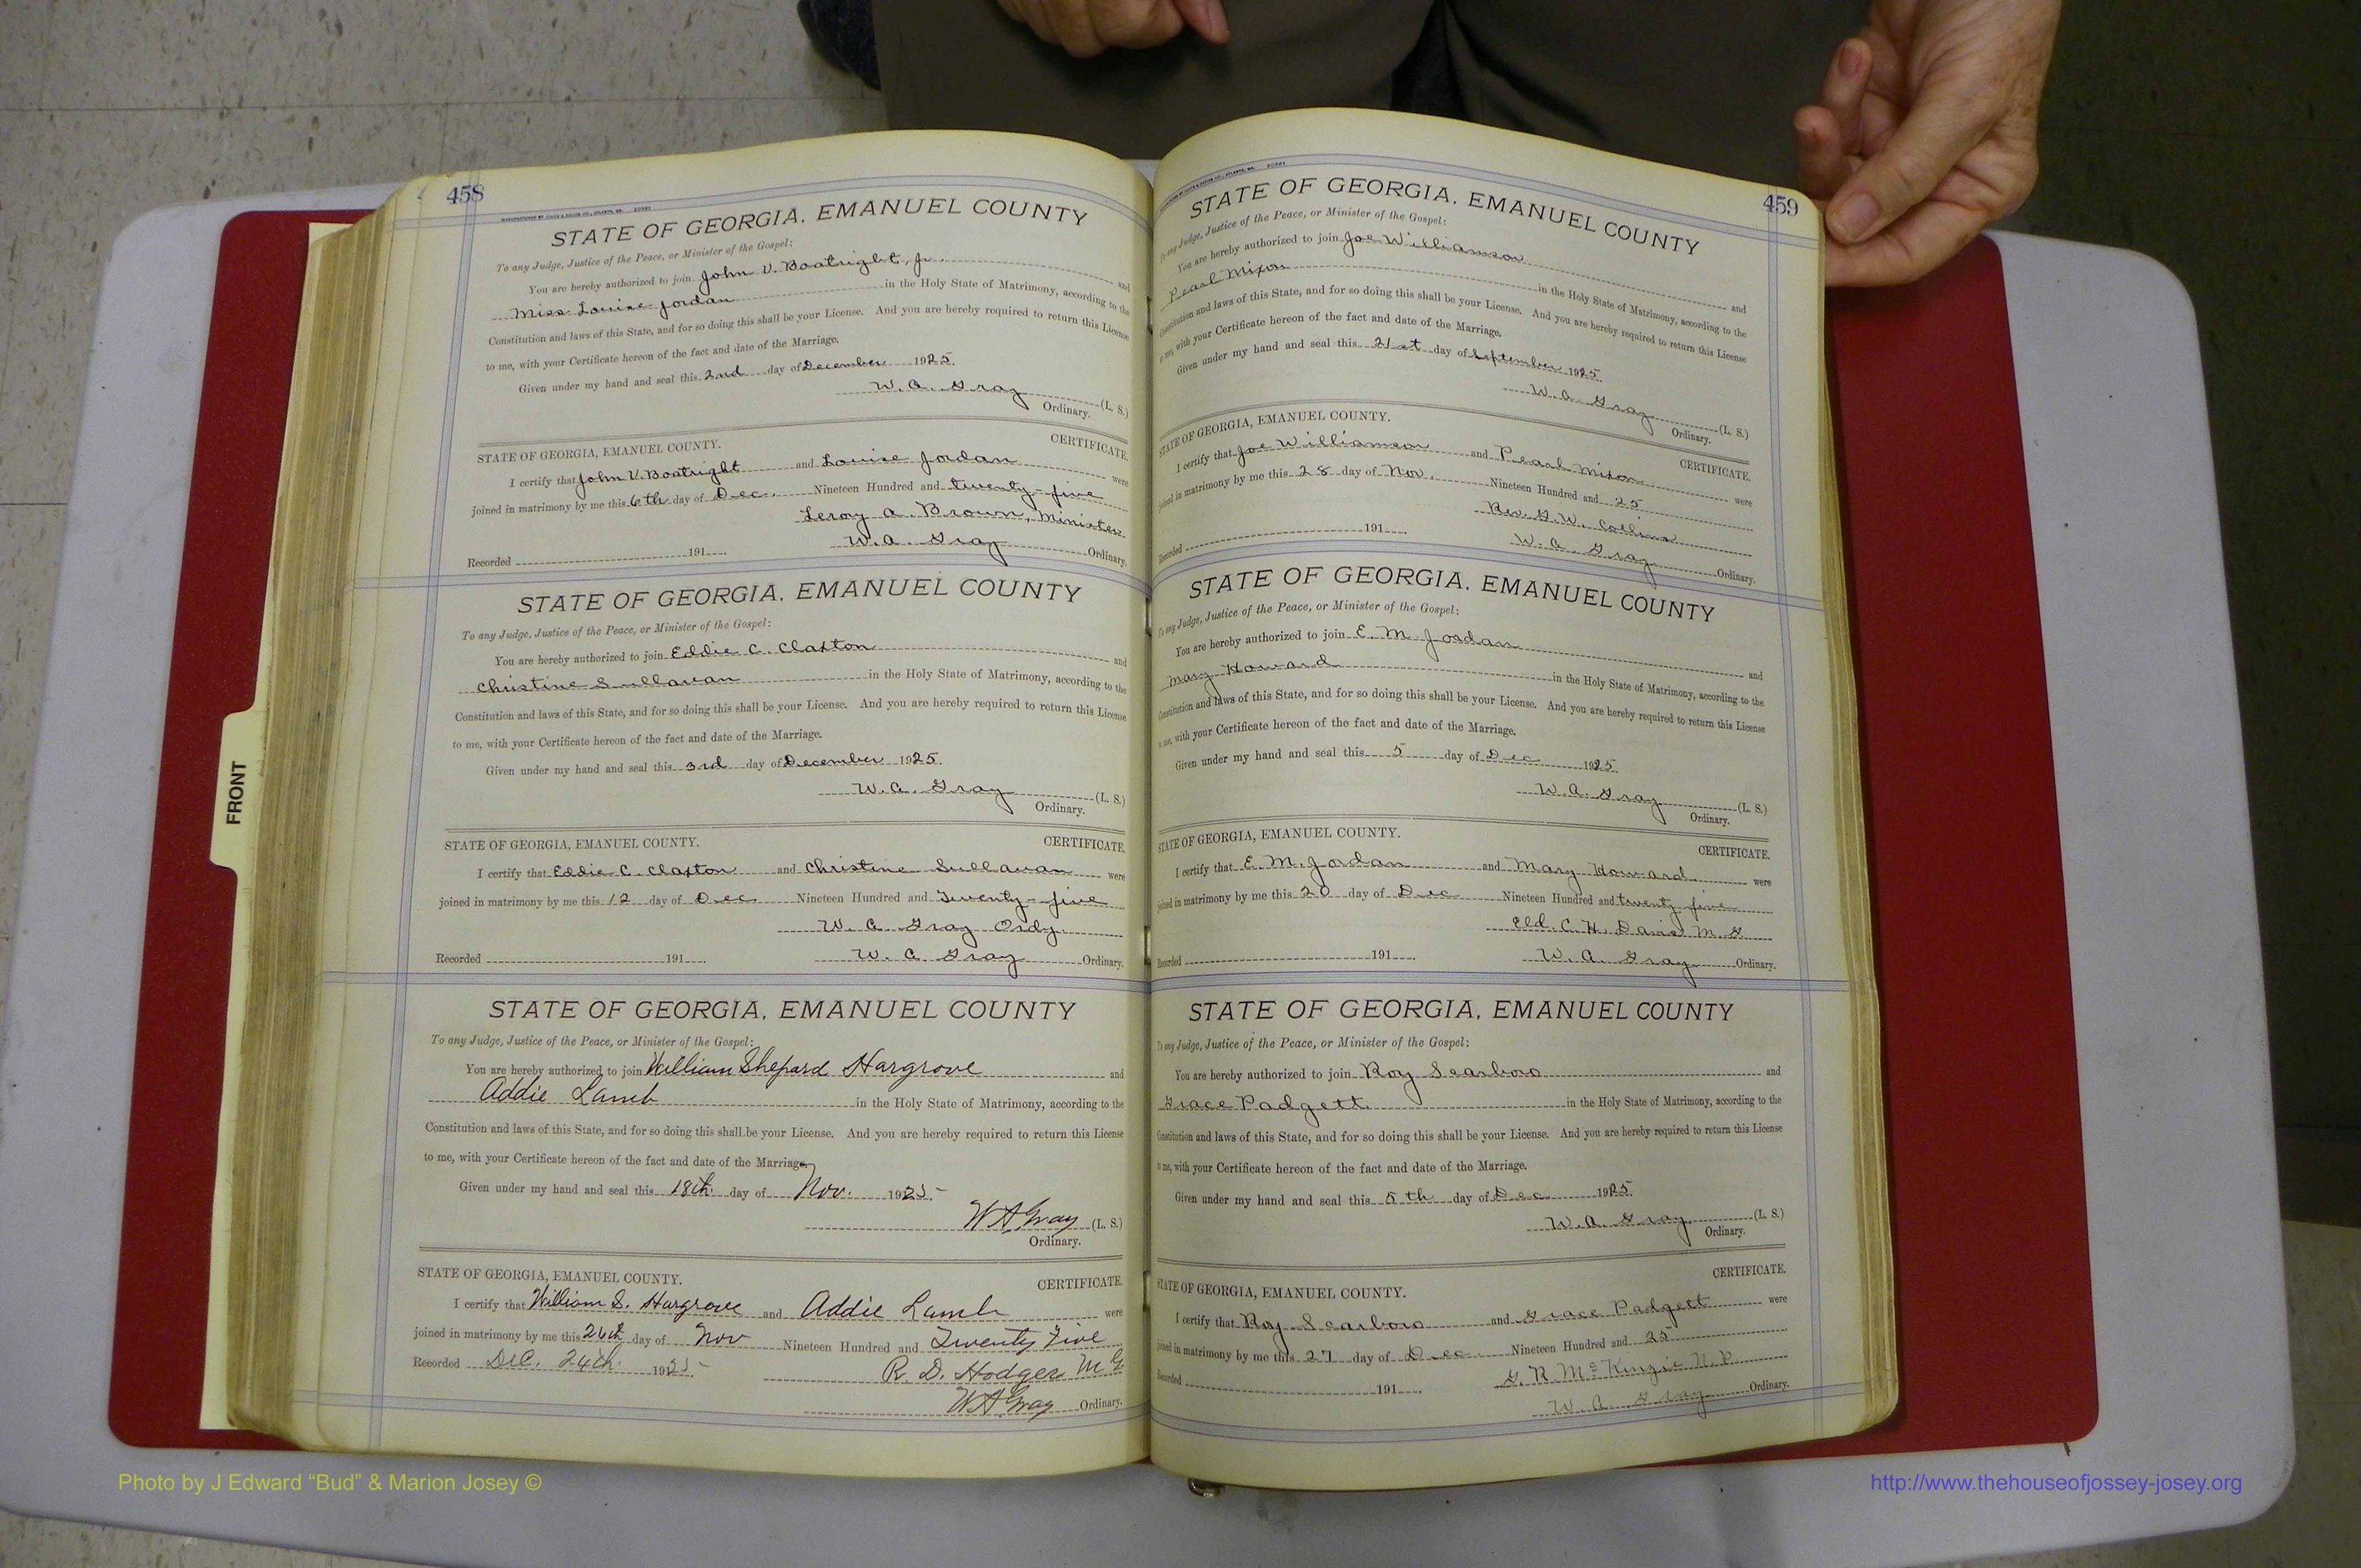 458
STATE OF GEORGIA, EMANUEL COUNTY
To any Judge, Justice of the Peace, or Minister of the Gospel:
You are hereby authorized to join John V. Boatright, Jr. and
Miss Louise Jordan in the Holy State of Matrimony, according to the
Constitution and laws of this State, and for so doing this shall be your License. And you are hereby required to return this License
to me, with your Certificate hereon of the fact and date of the Marriage.
Given under my hand and seal this 2nd day of December 1925.
W. A. Gray (L. S.)
Ordinary.
STATE OF GEORGIA, EMANUEL COUNTY. CERTIFICATE.
I certify that John V. Boatright and Louise Jordan were
joined in matrimony by me this 6th day of Dec. Nineteen Hundred and twenty-five
Leroy A. Brown, Minister
Recorded 191 W. A. Gray Ordinary.
STATE OF GEORGIA, EMANUEL COUNTY
To any Judge, Justice of the Peace, or Minister of the Gospel:
You are hereby authorized to join Eddie C. Claxton and
Christine Sullavan in the Holy State of Matrimony, according to the
Constitution and laws of this State, and for so doing this shall be your License. And you are hereby required to return this License
to me, with your Certificate hereon of the fact and date of the Marriage.
Given under my hand and seal this 3rd day of December 1925.
W. A. Gray (L. S.)
Ordinary.
STATE OF GEORGIA, EMANUEL COUNTY. CERTIFICATE.
I certify that Eddie C. Claxton and Christine Sullavan were
joined in matrimony by me this 12 day of Dec Nineteen Hundred and Twenty-five
W. A. Gray Ordy.
Recorded 191 W. A. Gray Ordinary.
STATE OF GEORGIA, EMANUEL COUNTY
To any Judge, Justice of the Peace, or Minister of the Gospel:
You are hereby authorized to join William Shepard Hargrove and
Addie Lamb in the Holy State of Matrimony, according to the
Constitution and laws of this State, and for so doing this shall be your License. And you are hereby required to return this License
to me, with your Certificate hereon of the fact and date of the Marriage.
Given under my hand and seal this 18th day of Nov. 1925
W A Gray (L. S.)
Ordinary.
STATE OF GEORGIA, EMANUEL COUNTY. CERTIFICATE.
I certify that William S. Hargrove and Addie Lamb were
joined in matrimony by me this 26th day of Nov Nineteen Hundred and Twenty Five
Recorded Dec. 24th 1925 R. D. Hodges M G
W A Gray Ordinary.
459
STATE OF GEORGIA, EMANUEL COUNTY
To any Judge, Justice of the Peace, or Minister of the Gospel:
You are hereby authorized to join Joe Williamson and
Pearl Mixon in the Holy State of Matrimony, according to the
Constitution and laws of this State, and for so doing this shall be your License. And you are hereby required to return this License
to me, with your Certificate hereon of the fact and date of the Marriage.
Given under my hand and seal this 21st day of September 1925.
W. A. Gray (L. S.)
Ordinary.
STATE OF GEORGIA, EMANUEL COUNTY. CERTIFICATE.
I certify that Joe Williamson and Pearl Mixon were
joined in matrimony by me this 28 day of Nov. Nineteen Hundred and 25
Rev. G. W. Collins
Recorded 191 W. A. Gray Ordinary.
STATE OF GEORGIA, EMANUEL COUNTY
To any Judge, Justice of the Peace, or Minister of the Gospel:
You are hereby authorized to join E. M. Jordan and
Mary Howard in the Holy State of Matrimony, according to the
Constitution and laws of this State, and for so doing this shall be your License. And you are hereby required to return this License
to me, with your Certificate hereon of the fact and date of the Marriage.
Given under my hand and seal this 5 day of Dec 1925.
W. A. Gray (L. S.)
Ordinary.
STATE OF GEORGIA, EMANUEL COUNTY. CERTIFICATE.
I certify that E. M. Jordan and Mary Howard were
joined in matrimony by me this 20 day of Dec Nineteen Hundred and twenty five
Eld. C. H. Davis M. G
Recorded 191 W. A. Gray Ordinary.
STATE OF GEORGIA, EMANUEL COUNTY
To any Judge, Justice of the Peace, or Minister of the Gospel:
You are hereby authorized to join Roy Scarboro and
Grace Padgett in the Holy State of Matrimony, according to the
Constitution and laws of this State, and for so doing this shall be your License. And you are hereby required to return this License
to me, with your Certificate hereon of the fact and date of the Marriage.
Given under my hand and seal this 5th day of Dec 1925.
W. A. Gray (L. S.)
Ordinary.
STATE OF GEORGIA, EMANUEL COUNTY. CERTIFICATE.
I certify that Roy Scarboro and Grace Padgett were
joined in matrimony by me this 27 day of Dec. Nineteen Hundred and 25
G. R. McKinzie N. P.
Recorded 191 W. A. Gray Ordinary.
FRONT
Photo by J Edward “Bud” & Marion Josey ©
http://www.thehouseofjossey-josey.org